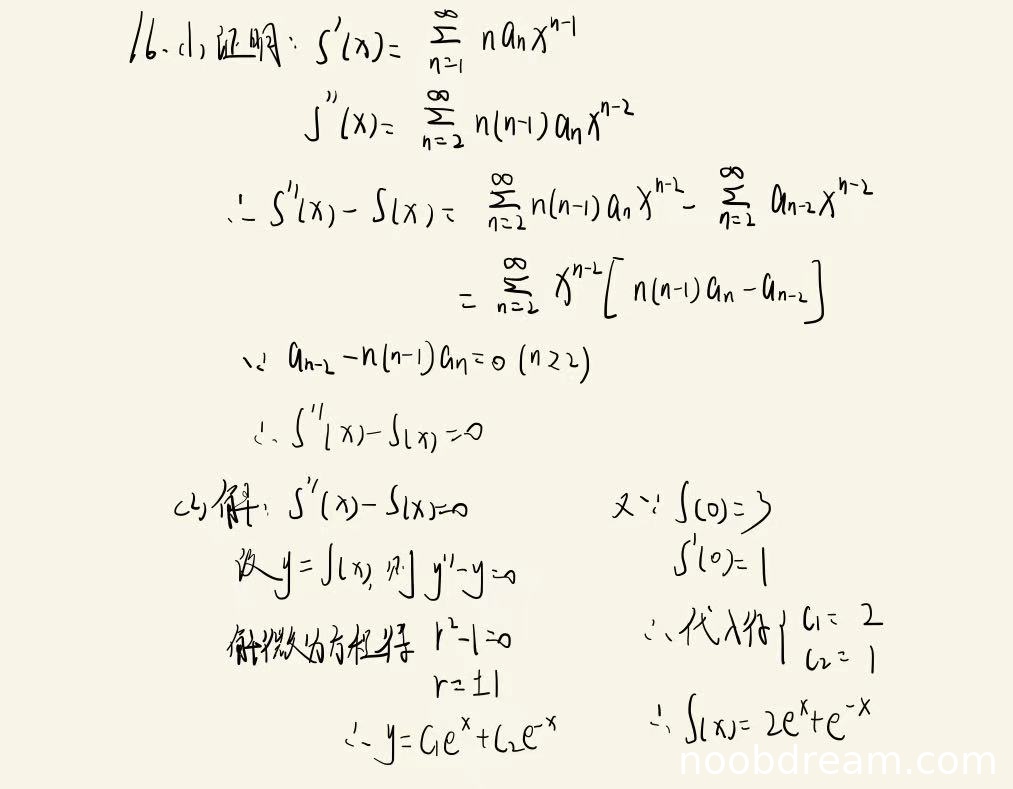 16.(1)证明: S'(x)= ∑_{n=1}^{∞} n a_n x^{n-1}
S''(x)= ∑_{n=2}^{∞} n(n-1) a_n x^{n-2}
∴ S''(x)-S(x)= ∑_{n=2}^{∞} n(n-1) a_n x^{n-2} - ∑_{n=2}^{∞} a_{n-2} x^{n-2}
= ∑_{n=2}^{∞} x^{n-2} [n(n-1) a_n - a_{n-2}]
∵ a_{n-2} - n(n-1) a_n = 0 (n≥2)
∴ S''(x)-S(x)=0
(2)解: S''(x)-S(x)=0
设y=S(x), 则 y''-y=0
解微分方程得 r²-1=0
r=±1
∴ y=C₁e^x+C₂e^{-x}
又∵ S(0)=3
S'(0)=1
∴代入得{ C₁= 2
C₂= 1
∴ S(x)= 2e^x+e^{-x}
noobdream.com